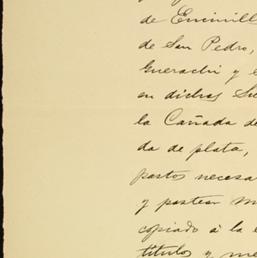 de Encinill
de San Pedro,
Guerachi y e
en dichas Su
la Cañada de
da de plata,
pastos necesa
y pastear m
copiado á la e
títulos y me